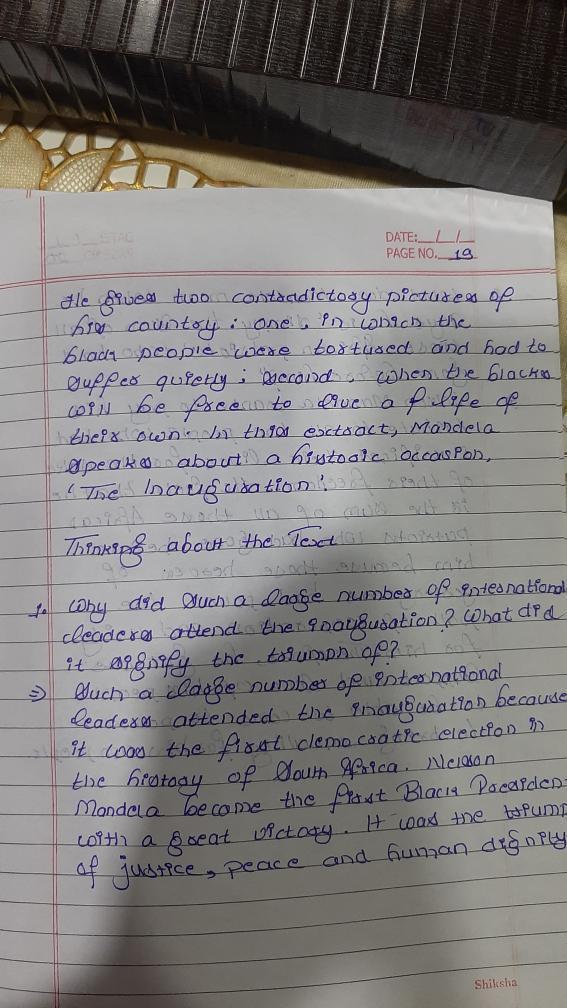 DATE: / /
PAGE NO. 19
He gives two contradictory pictures of
his country: one, in which the
black people were tortured and had to
suffer quietly; second, when the blacks
will be free to live a life of
their own. In this extract, Mandela
speaks about a historic occasion,
'The Inauguration'.
Thinking about the Text
1. Why did such a large number of international
leaders attend the inauguration? What did
it signify the triumph of?
⇒ Such a large number of international
leaders attended the inauguration because
it was the first democratic election in
the history of South Africa. Nelson
Mandela became the first Black Presiden
with a great victory. It was the trium
of justice, peace and human dignity
Shiksha